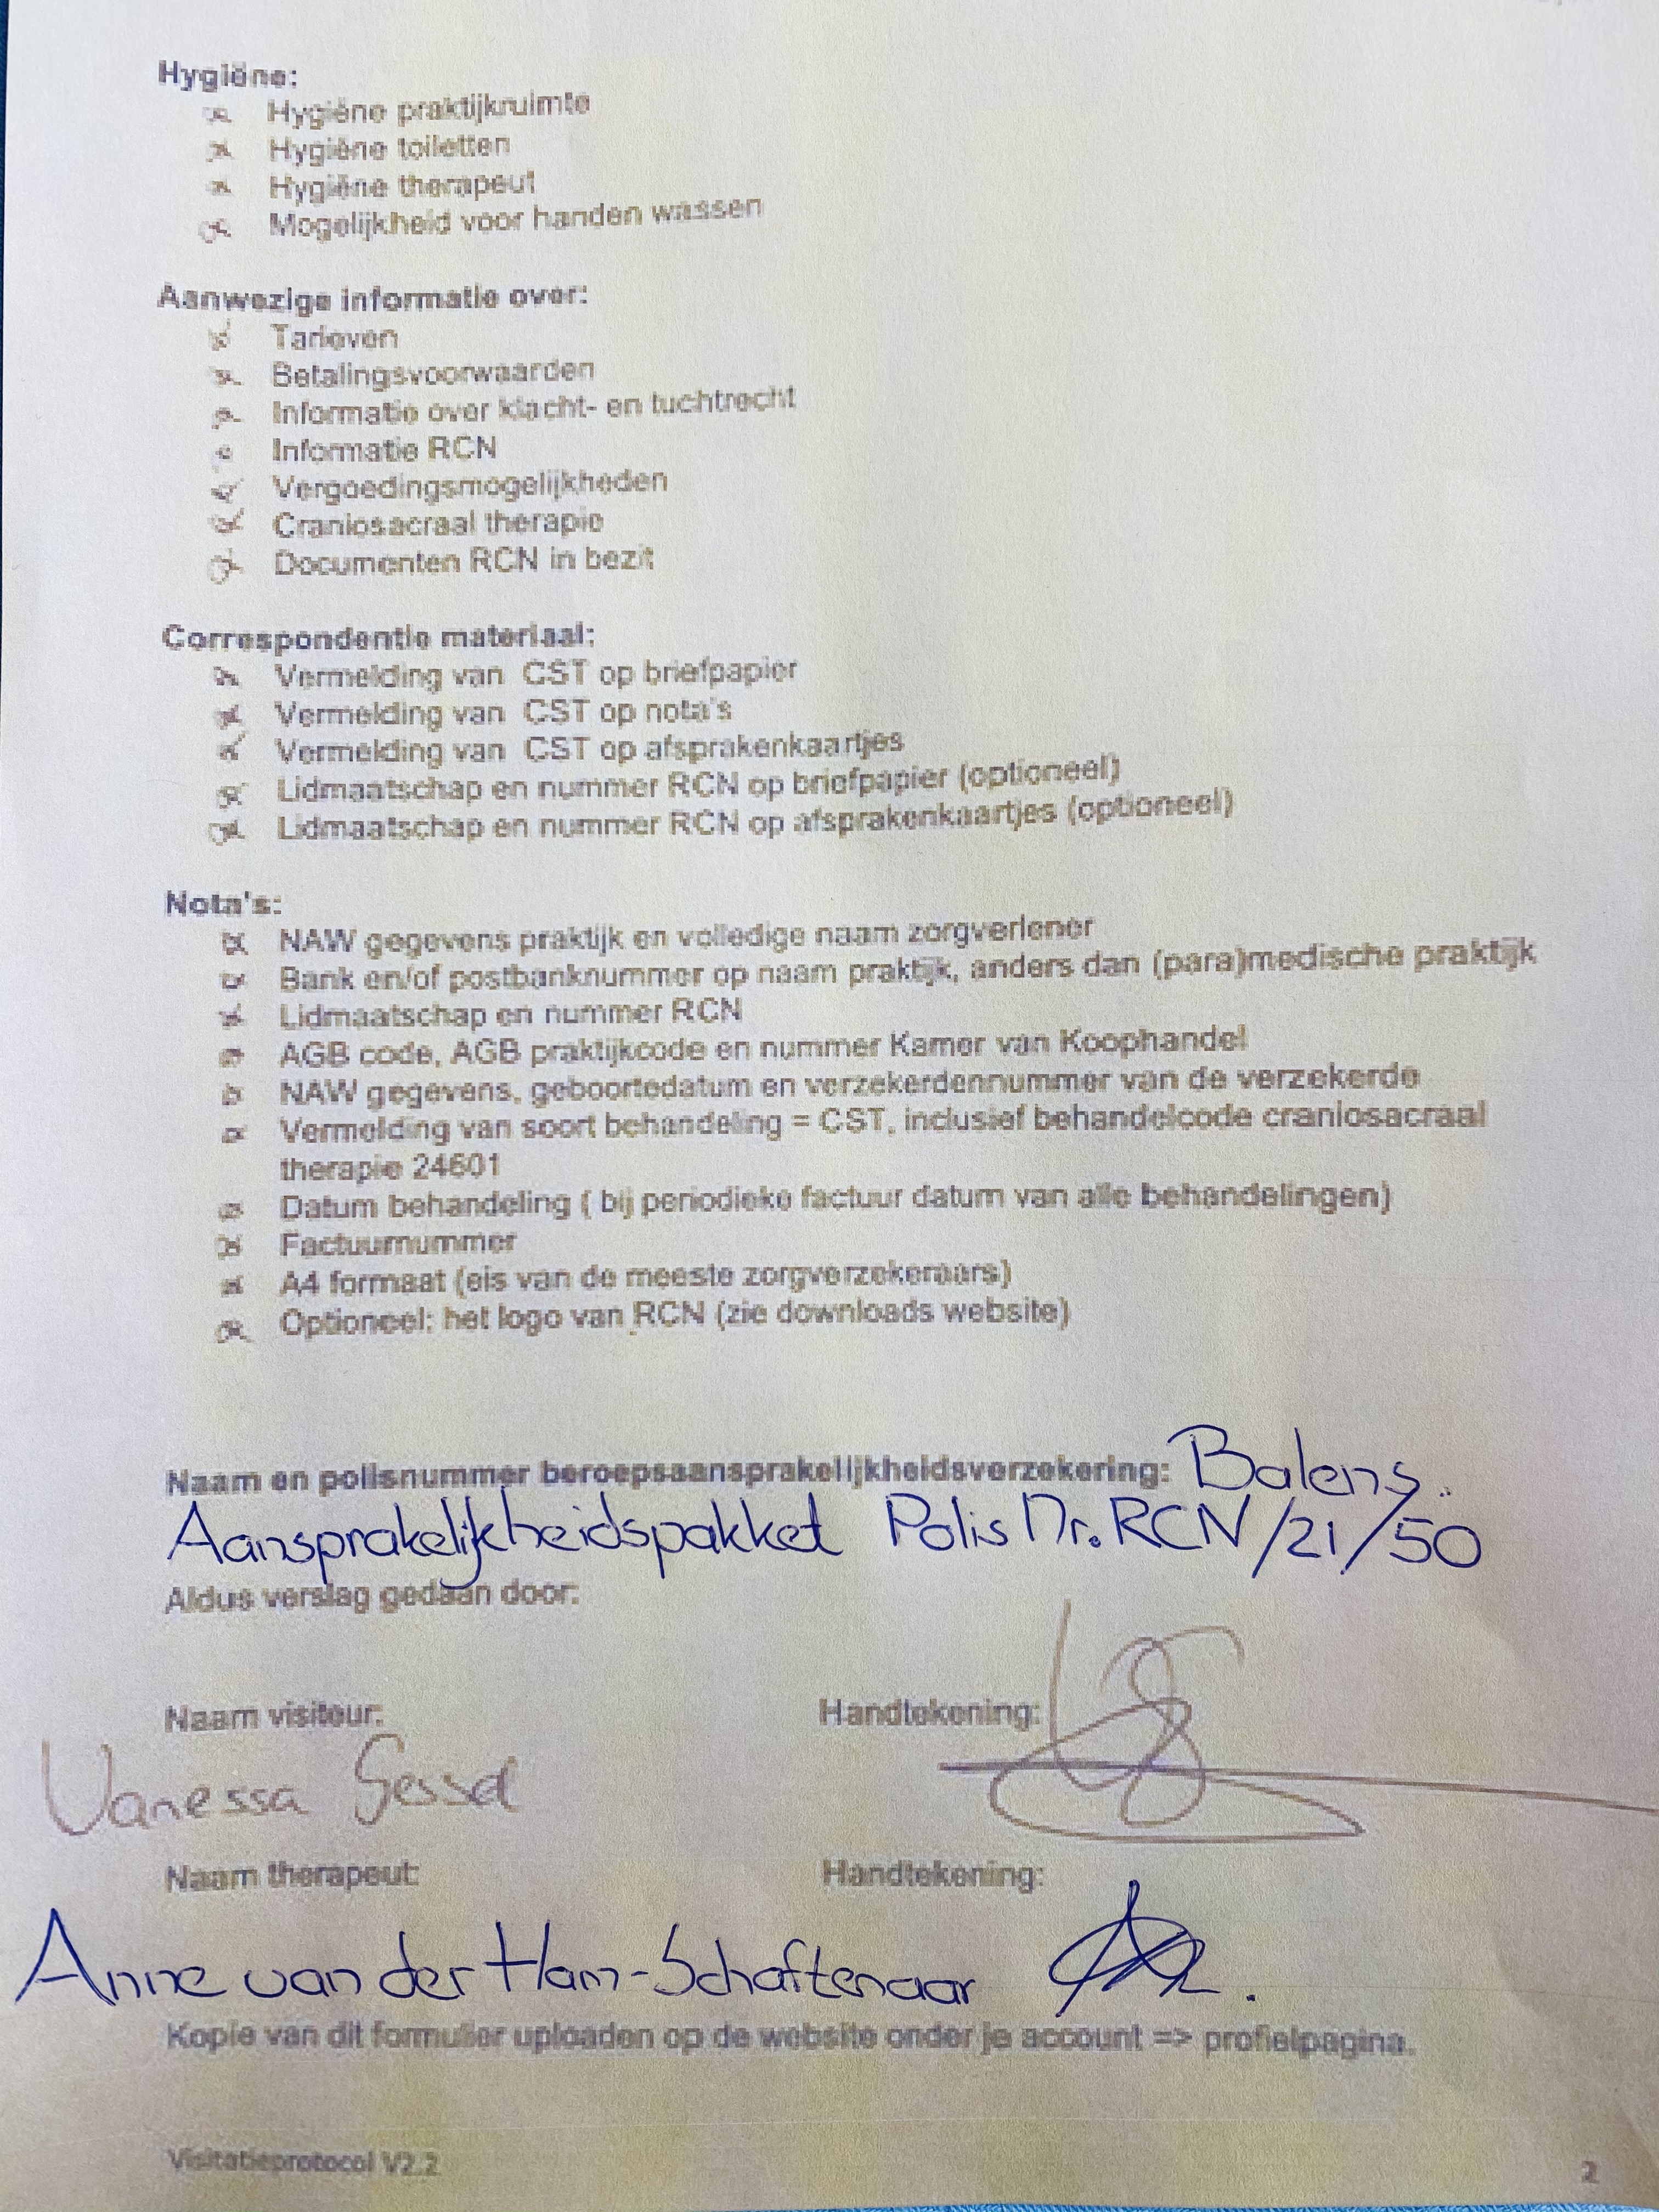 Hygiëne:
Hygiëne praktijkruimte
Hygiëne toiletten
Hygiëne therapeut
Mogelijkheid voor handen wassen
Aanwezige informatie over:
Tarieven
Betalingsvoorwaarden
Informatie over klacht- en tuchtrecht
Informatie RCN
Vergoedingsmogelijkheden
Craniosacraal therapie
Documenten RCN in bezit
Correspondentie materiaal:
Vermelding van CST op briefpapier
Vermelding van CST op nota's
Vermelding van CST op afsprakenkaartjes
Lidmaatschap en nummer RCN op briefpapier (optioneel)
Lidmaatschap en nummer RCN op afsprakenkaartjes (optioneel)
Nota's:
NAW gegevens praktijk en volledige naam zorgverlener
Bank en/of postbanknummer op naam praktijk, anders dan (para)medische praktijk
Lidmaatschap en nummer RCN
AGB code, AGB praktijkcode en nummer Kamer van Koophandel
NAW gegevens, geboortedatum en verzekerdennummer van de verzekerde
Vermelding van soort behandeling = CST, inclusief behandelcode craniosacraal
therapie 24601
Datum behandeling ( bij periodieke factuur datum van alle behandelingen)
Factuurnummer
A4 formaat (eis van de meeste zorgverzekeraars)
Optioneel: het logo van RCN (zie downloads website)
Naam en polisnummer beroepsaansprakelijkheidsverzekering: Balens..
Aansprakelijkheidspakket Polis Nr. RCN/21/50
Aldus verslag gedaan door:
Naam visiteur: Handtekening:
Vanessa
Naam therapeut: Handtekening:
Anne van der Ham-Schaftenaar
Kopie van dit formulier uploaden op de website onder je account => profielpagina.
Visitatieprotocol V2.2 2